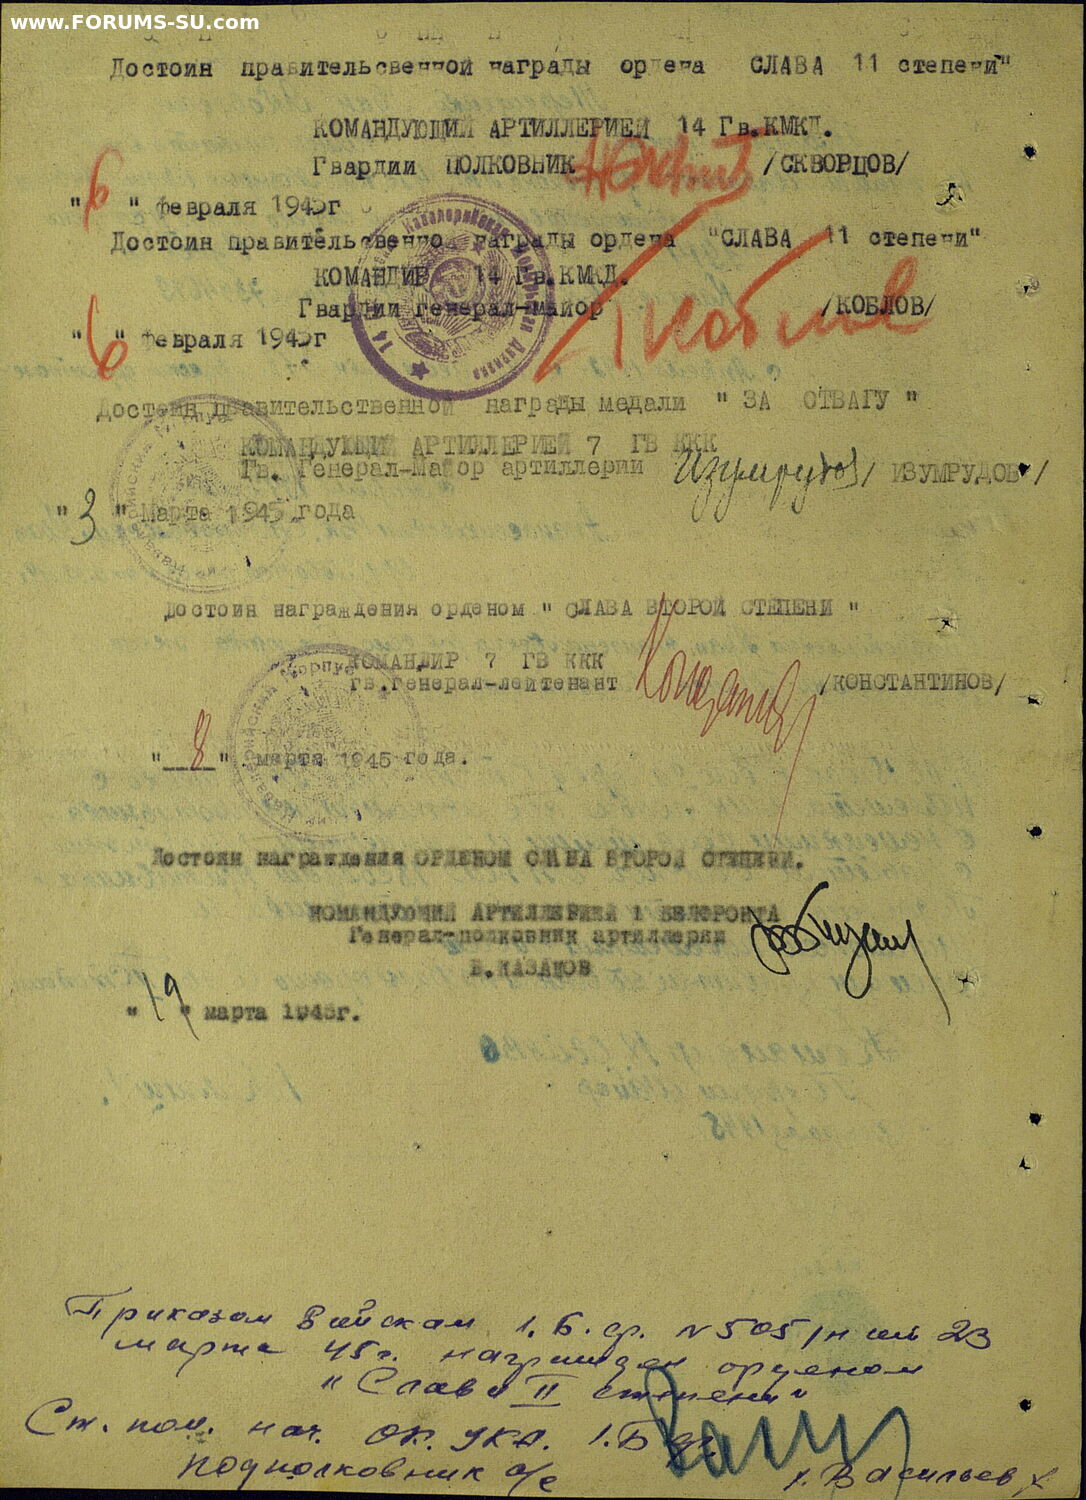 www.FORUMS-SU.com
Достоин правительсвенной награды ордена СЛАВА 11 степени"
КОМАНДУЮЩИЙ АРТИЛЛЕРИЕЙ 14 Гв.КМКД.
Гвардии ПОЛКОВНИК /СКВОРЦОВ/
"6" февраля 1945г
Достоин правительсвенно награды ордена "СЛАВА 11 степени"
КОМАНДИР 14 Гв.КМКД.
Гвардии генерал-майор Коблов /КОБЛОВ/
"6" февраля 1945г
Достоин правительственной награды медали " ЗА ОТВАГУ "
КОМАНДУЮЩИЙ АРТИЛЛЕРИЕЙ 7 ГВ ККК
Гв. Генерал-Майор артиллерии Изумрудов / ИЗУМРУДОВ /
"3" Марта 1945 года
Достоин награждения орденом " СЛАВА ВТОРОЙ СТЕПЕНИ "
КОМАНДИР 7 ГВ ККК
гв.генерал-лейтенант /КОНСТАНТИНОВ/
"8" марта 1945 года.
Достоин награждения ОРДЕНОМ СЛАВА ВТОРОЙ СТЕПЕНИ.
КОМАНДУЮЩИЙ АРТИЛЛЕРИЕЙ 1 БЕЛФРОНТА
Генерал-полковник артиллерии
В.КАЗАКОВ
"19" марта 1945г.
Приказом Войскам 1.Б.ф. №505/н от 23
марта 45г. награжден орденом
"Слава II степени"
Ст. пом. нач. ОК. УКА. 1.Б.ф.
подполковник а/с Васильев